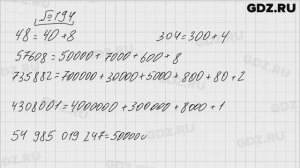 GDZ.RU
№194
48=40+8 304=300+4
57608=50000+7000+600+8
735882=700000+30000+5000+800+80+2
4308001=4000000+300000+8000+1
54 985 019 247=50000
GDZ.RU